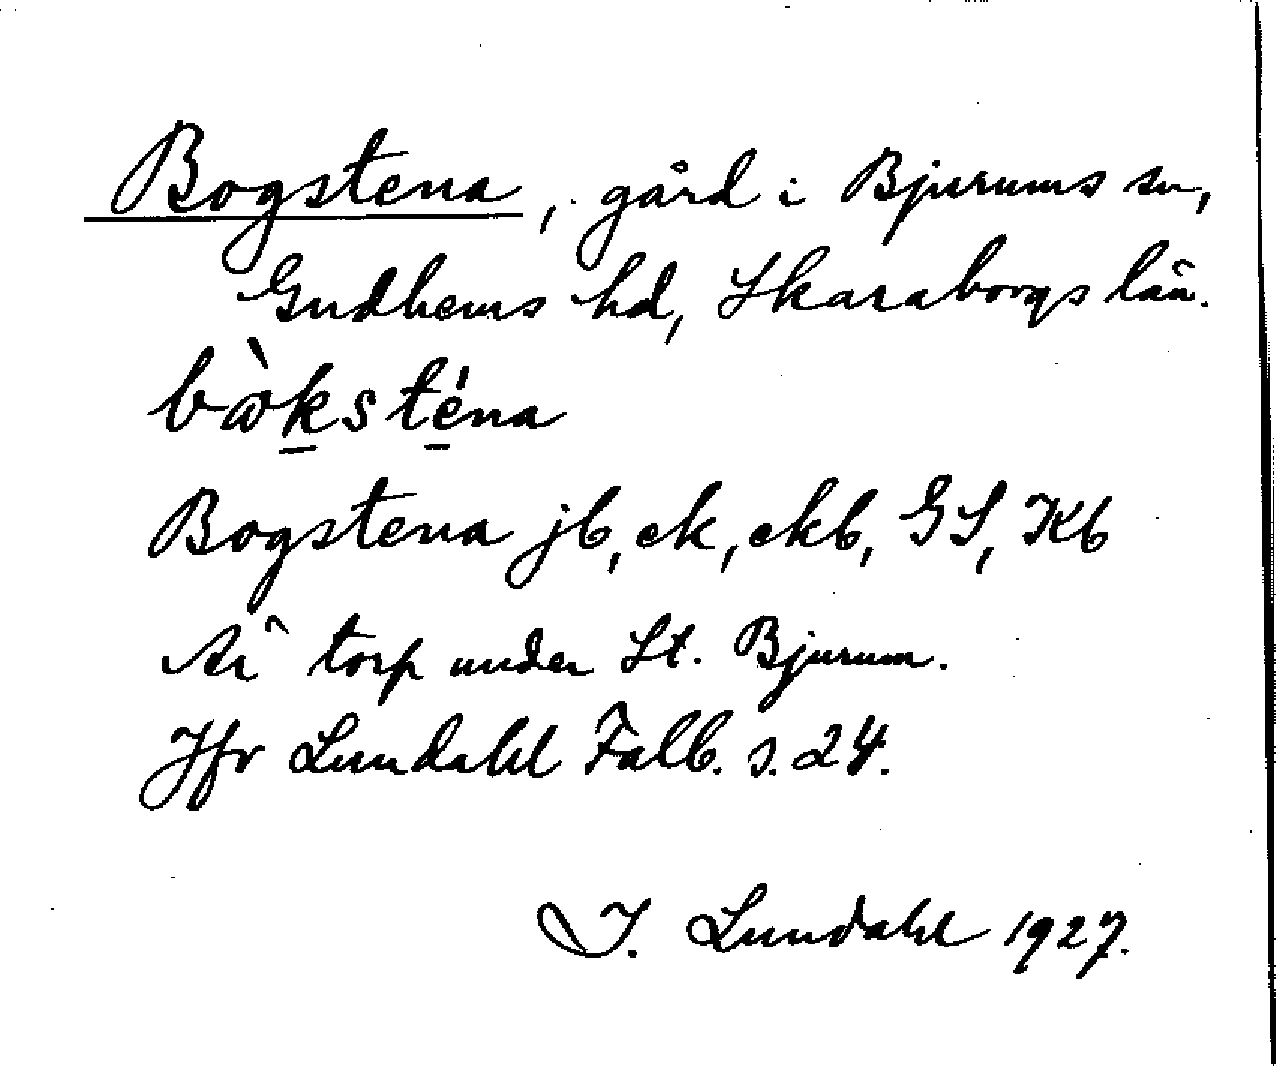 Bogstena, gård i Bjurums sn,
Gudhems hd, Skaraborgs län.
bò̱ksténa
Bogstena jb, ek, ekb, GS, Kb
Är torp under St. Bjurum.
Jfr Lundahl Falb. s. 24.
I. Lundahl 1927.